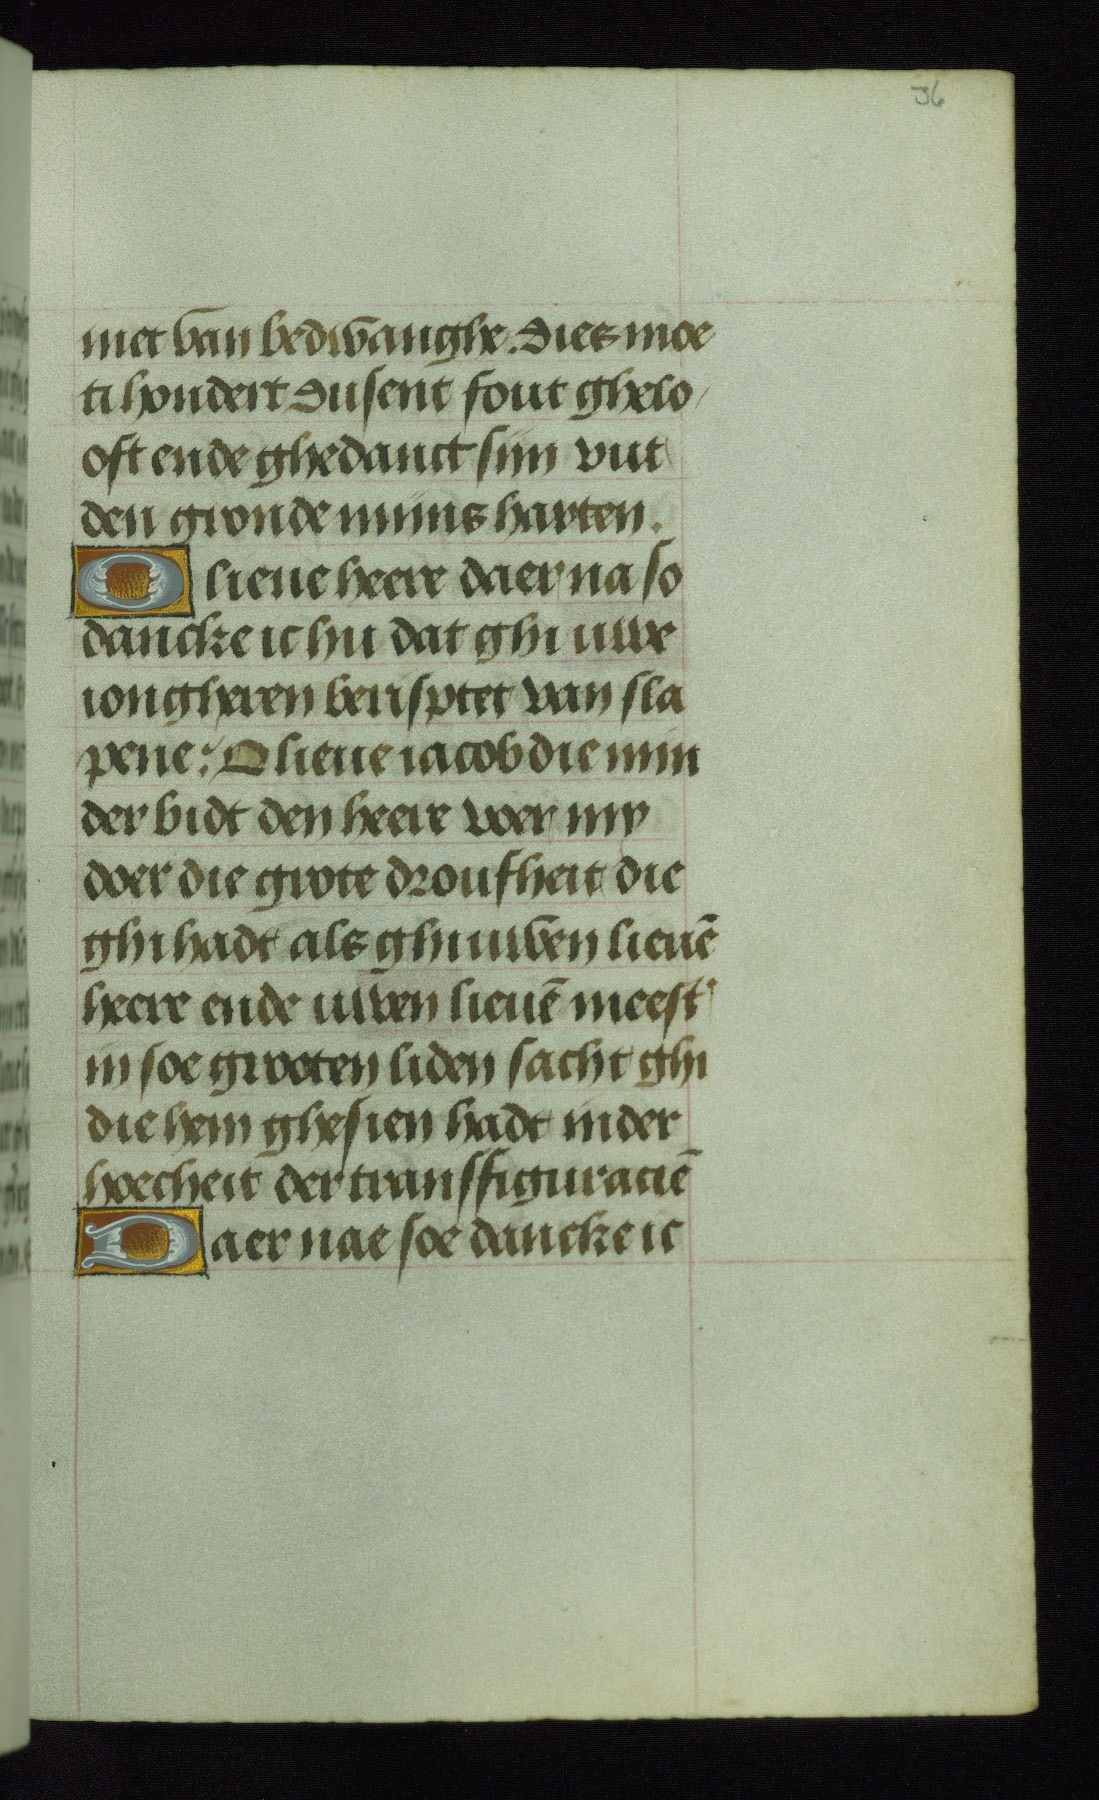 36
niet van bedwanghe. Dies moe
ti hondert dusent fout ghelo
oft ende ghedanct sijn vut
den gronde mijns harten.
O lieue heere daer na so
dancke ic hu dat ghi uwe
iongheren berisptet van sla
pene: O lieue iacob die min
der bidt den heere voer my
doer die grote droufheit die
ghi hadt als ghi uwen lieuē
heere ende uwen lieuē meest'
in soe grooten liden sacht ghi
die hem ghesien hadt in der
hoecheit der transffiguraciē
Daer nae soe dancke ic